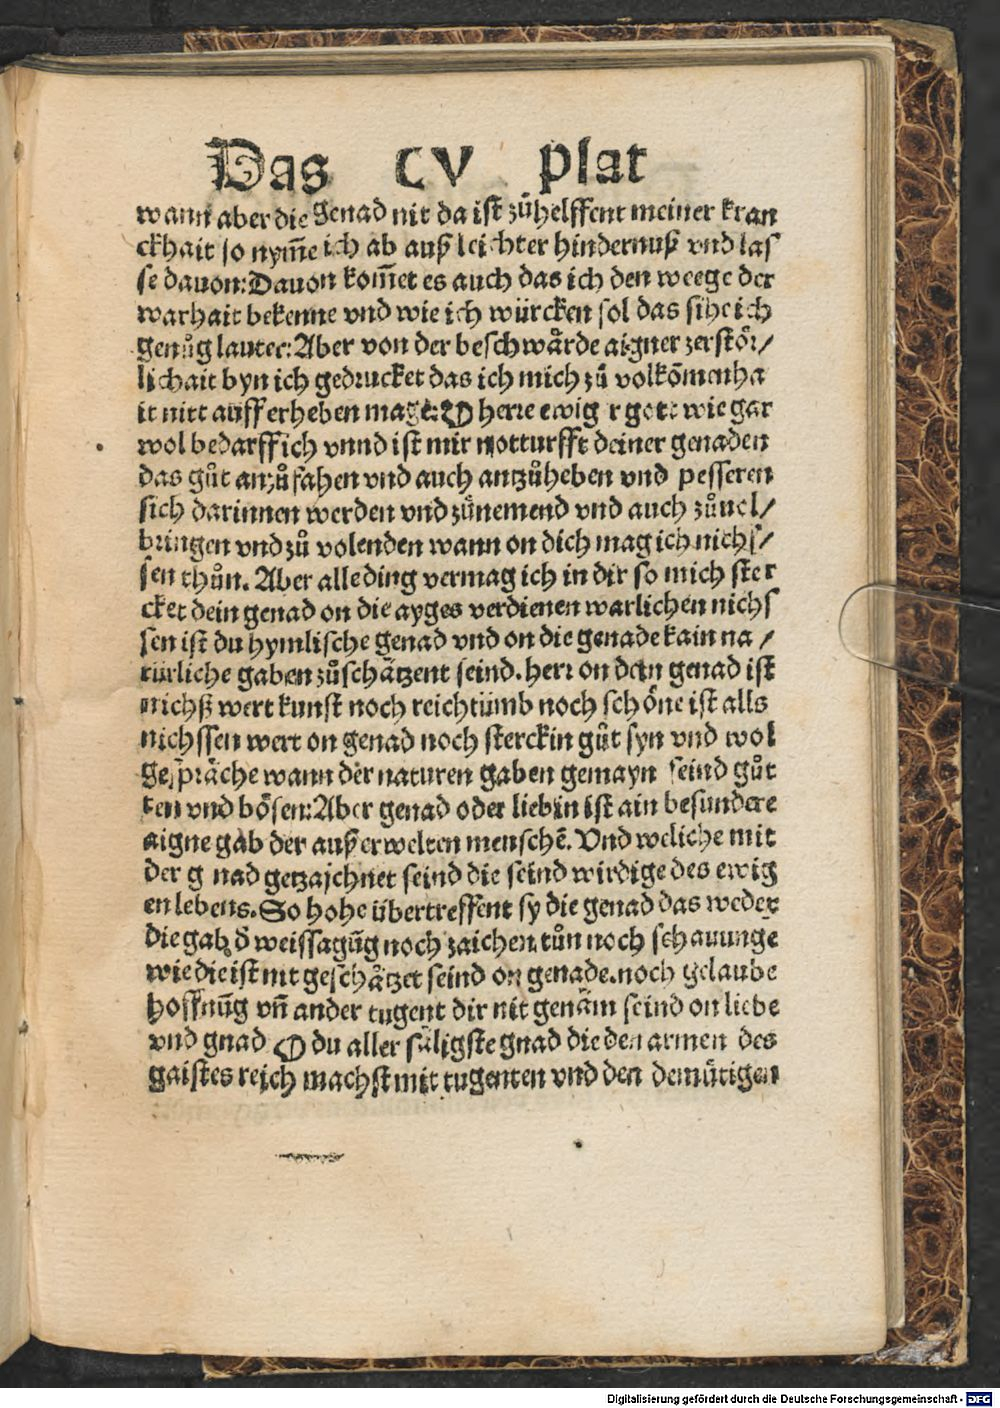 Das CV plat
wann aber die genad nit da ist zůhelffent meiner kran
ckhait so nym̃e ich ab auß leichter hindernuß vnd las
se dauon: Dauon kom̃et es auch das ich den weege der
warhait bekenne vnd wie ich würcken sol das sihe ich
genůg lauter: Aber von der beschwårde aigner zerstör/
lichait byn ich gedrucket das ich mich zů volkōmenha
it nitt auff erheben mage: O herre ewig r gott wie gar
wol bedarff ich vnnd ist mir notturfft deiner genaden
das gůt anzůfahen vnd auch antzůheben vnd pesseren
sich darinnen werden vnd zůnemend vnd auch zůuol/
bringen vnd zů volenden wann on dich mag ich nichs/
sen thůn. Aber alle ding vermag ich in dir so mich ster
cket dein genad on die ayges verdienen warlichen nichs
sen ist du hymlische genad vnd on die genade kain na/
türliche gaben zůschåtzent seind. herr on dein genad ist
nichß wert kunst noch reichtümb noch schöne ist alls
nichssen wert on genad noch sterckin gůt syn vnd wol
gespräche wann der naturen gaben gemayn seind gůt
ten vnd bösen: Aber genad oder liebin ist ain besundere
aigne gab der außerwelten menschē. Vnd weliche mit
der g nad getzajchnet seind die seind wirdige des ewig
en lebens. So hohe übertreffent sy die genad das weder
die gab đ weissagūg noch zaichen tůn noch schauungē
wie die ist nit geschåtzet seind on genade. noch gelaube
hoffnūg vn̄ ander tugent dir nit genåm seind on liebe
vnd gnad O du aller såligste gnad die den armen des
gaistes rejch machst mit tugenten vnd den demütigen
Digitalisierung gefördert durch die Deutsche Forschungsgemeinschaft - DFG